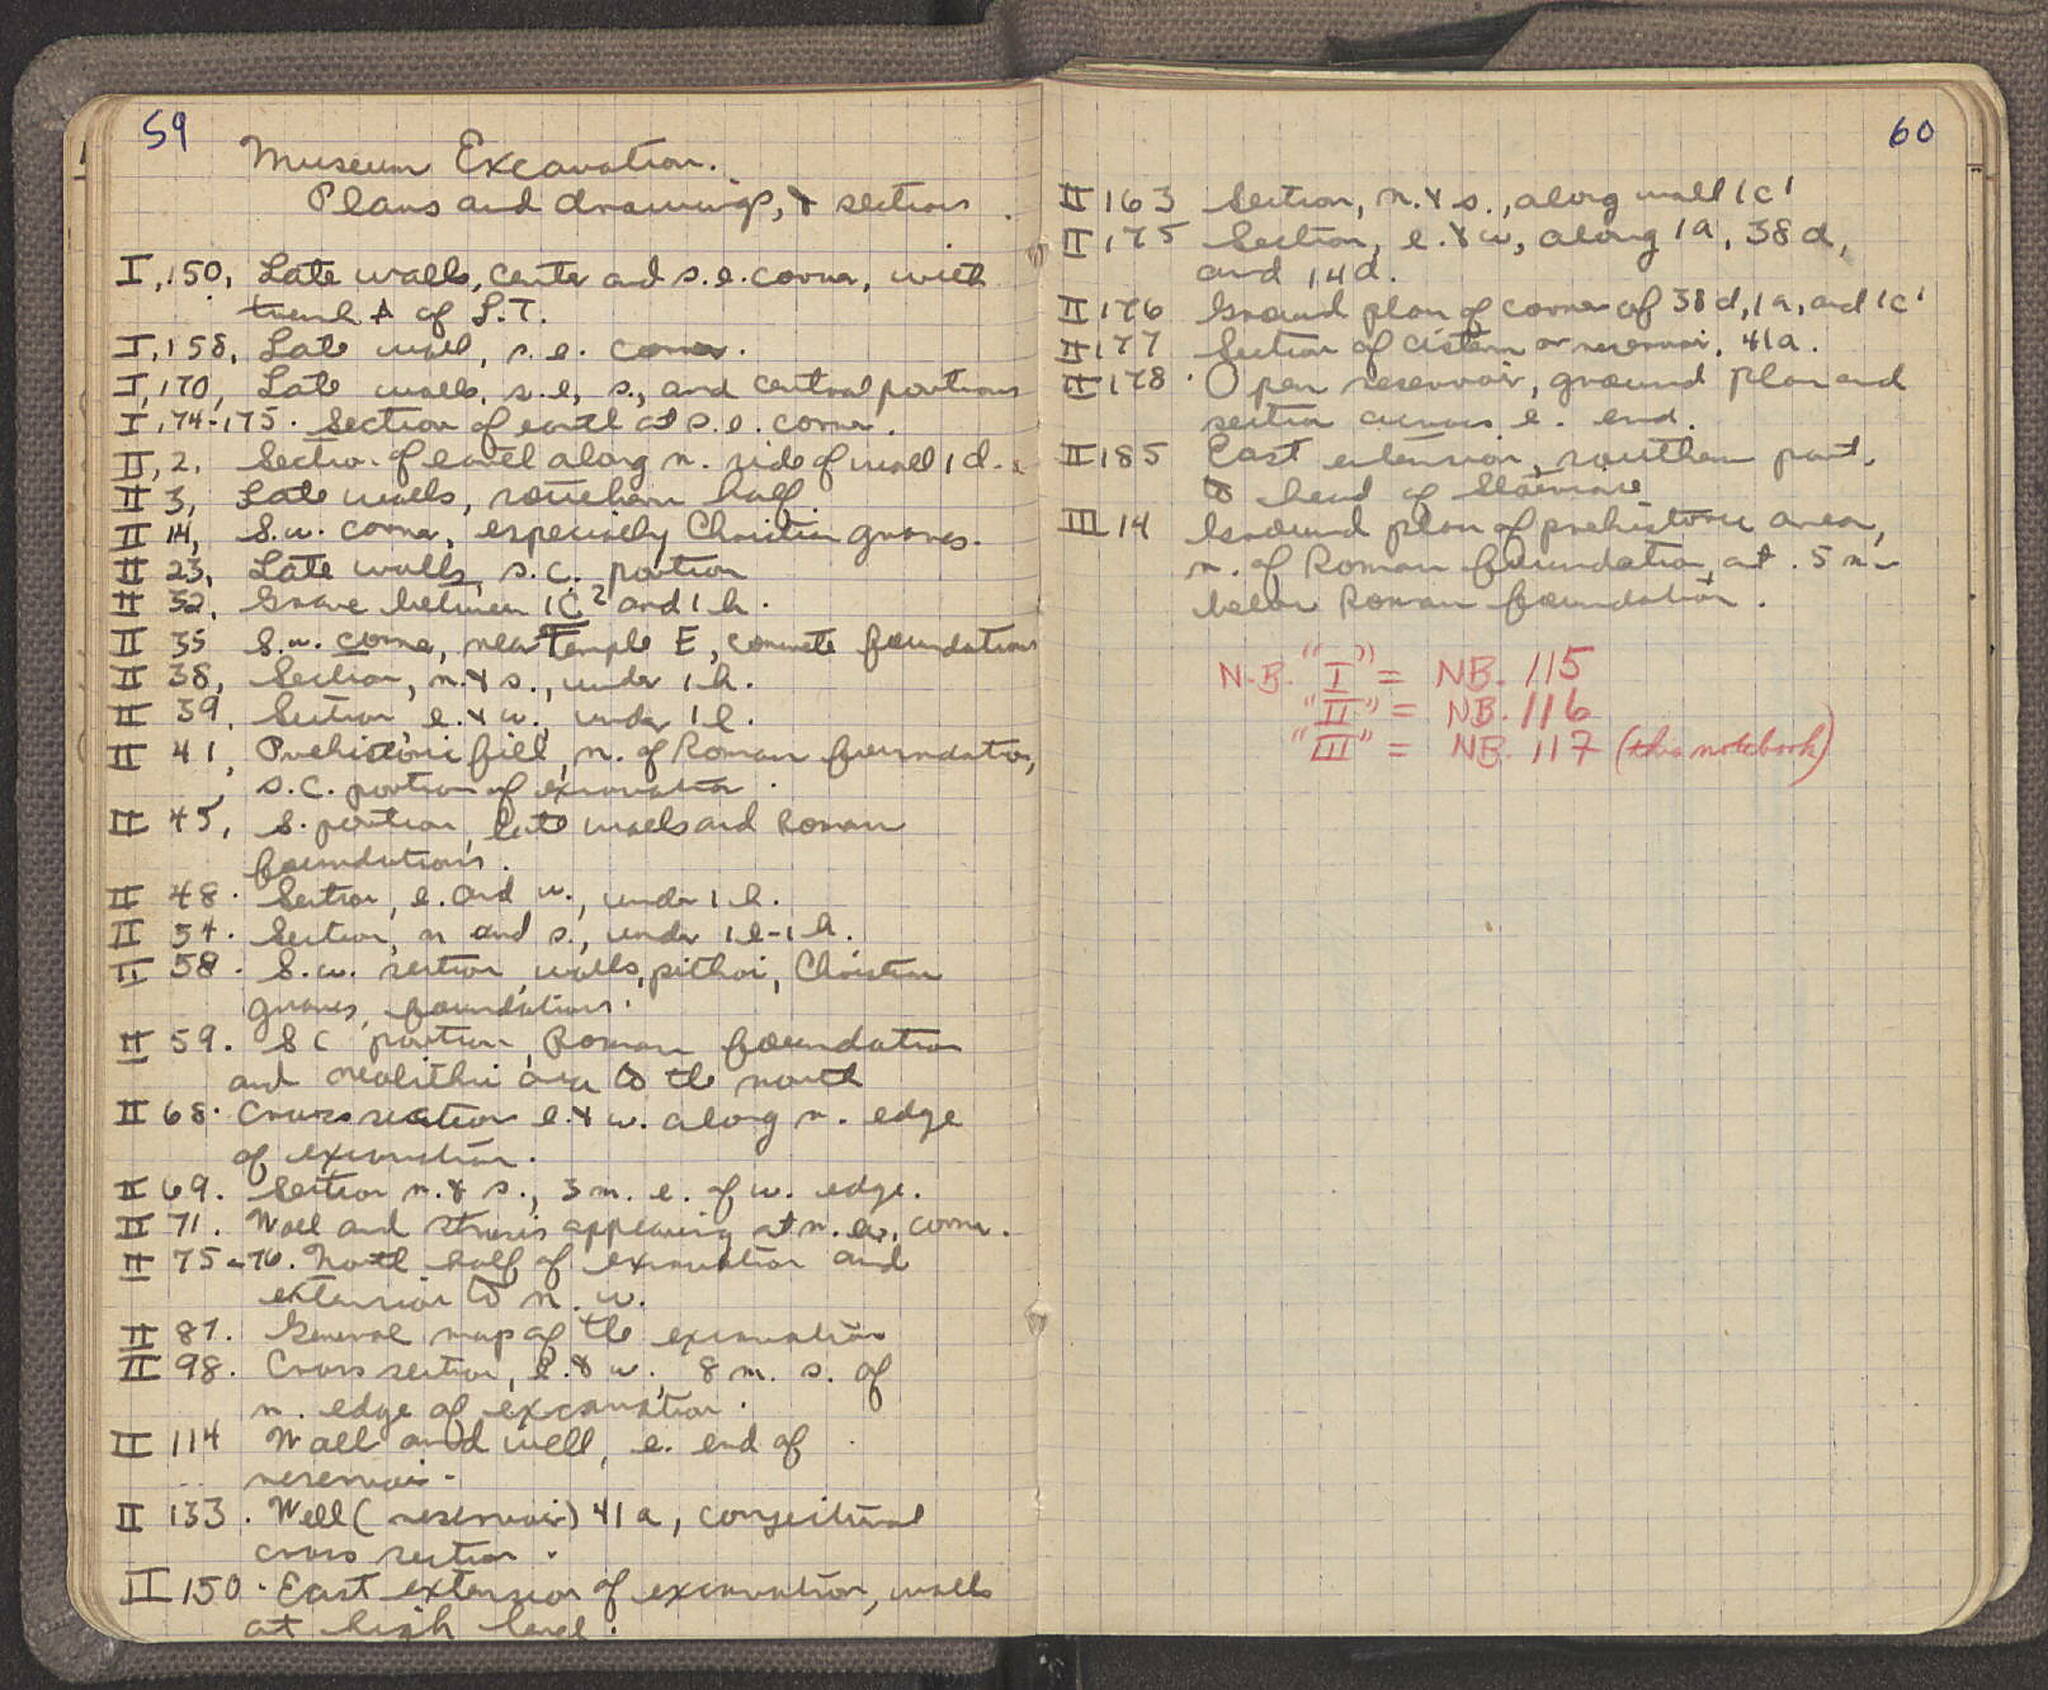 59
Museum Excavation.
Plans and drawings, & sections.
I, 150, Late walls, center and s.e. corner, with
trench A of L.T.
I, 158, Late wall, s.e. corner.
I, 170, Late walls, s.e, s., and central portions
I, 174-175. Section of earth at s.e. corner.
II, 2, Section of earth along n. side of wall 1d.
II 3, Late walls, southern half.
II 14, S.w. corner, especially Christian graves.
II 23, Late walls, s.c. portion
II 32, Grave between 1c² and 1h.
II 35 S.w. corner, near Temple E, concrete foundations
II 38, Section, n. & s., under 1h.
II 39, Section, e. & w., under 1l.
II 41, Prehistoric fill, n. of Roman foundation,
s.c. portion of excavation.
II 45, S. portion, late walls and Roman
foundations.
II 48. Section, e. and w., under 1h.
II 54. Section, n and s., under 1l-1h.
II 58. S.w. section, walls, pithoi, Christian
graves, foundations.
II 59. S C portion, Roman foundation
and neolithic area to the north
II 68. Cross section e. & w. along n. edge
of excavation.
II 69. Section n. & s., 3 m. e. of w. edge.
II 71. Wall and stones appearing at n. corner.
II 75-76. North half of excavation and
extension to n. w.
II 87. General map of the excavation
II 98. Cross section, e. & w., 8 m. s. of
n. edge of excavation.
II 114 Wall and well, e. end of
reservoir.
II 133. Well (reservoir) 41a, conjectural
cross section.
II 150. East extension of excavation, walls
at high level.
60
II 163 Section, n. & s., along wall 1c'
II 175 Section, e. & w, along 1a, 38d,
and 14d.
II 176 Ground plan of corner of 38d, 1a, and 1c'
II 177 Section of cistern or reservoir, 41a.
II 178. Open reservoir, ground plan and
section across e. end.
II 185 East extension, southern part,
to head of staircase
III 14 Ground plan of prehistoric area,
n. of Roman foundation, at .5 m.
below Roman foundation.
N.B. "I" = NB. 115
"II" = NB. 116
"III" = NB. 117 (this notebook)